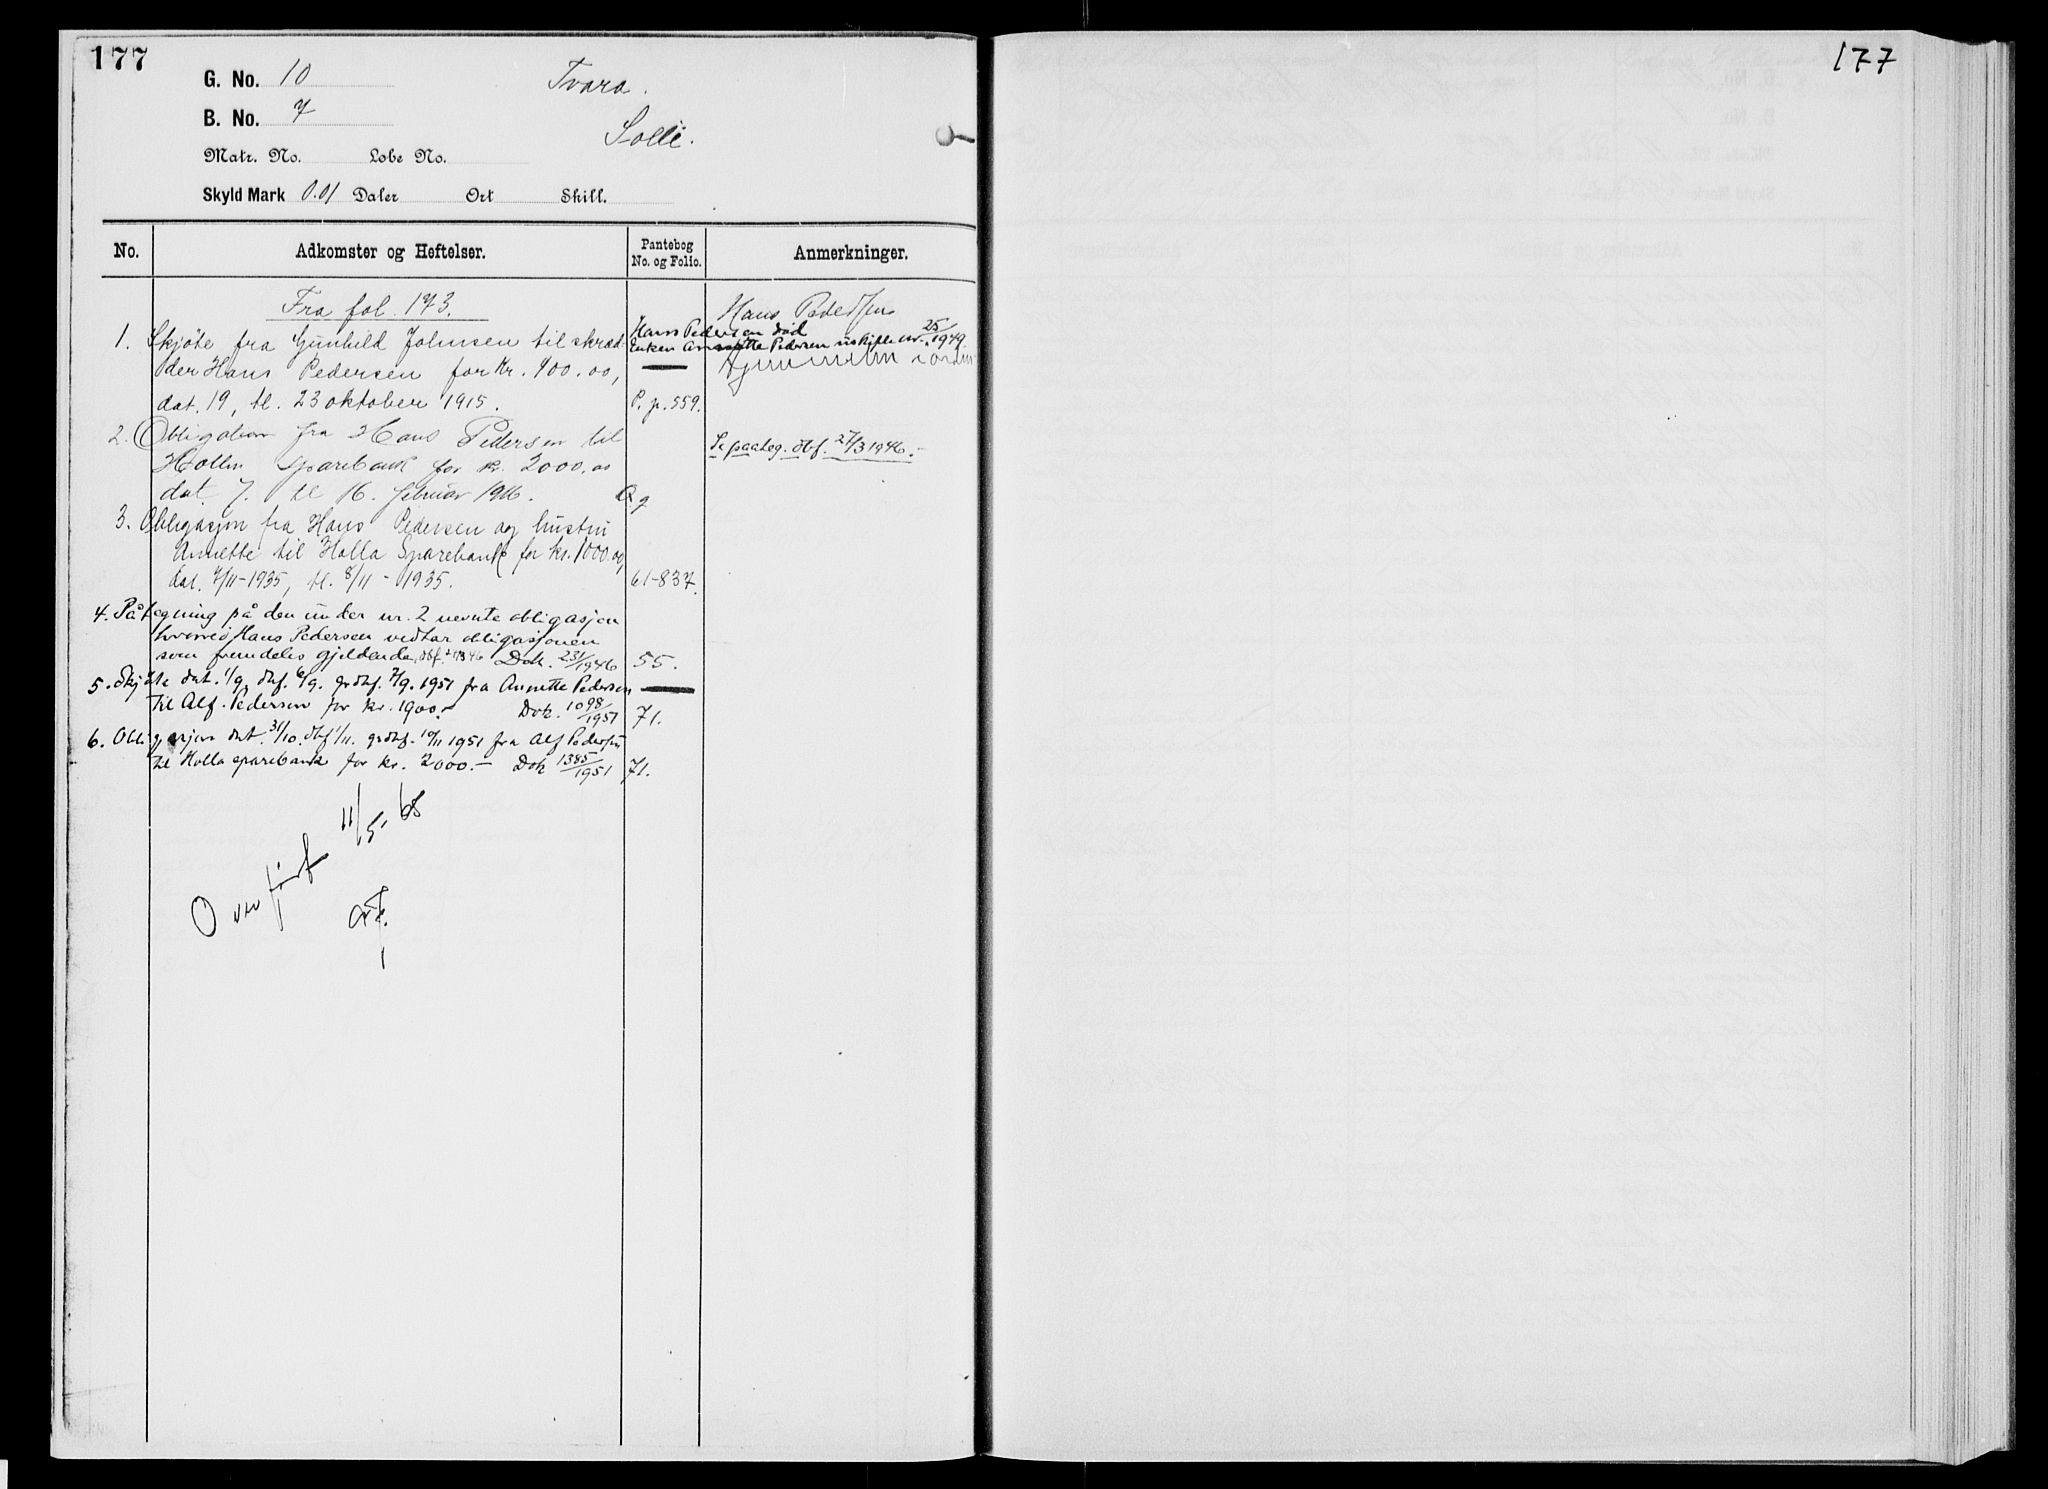 177
G. No. 10
Tvara.
B. No. 7
Solli.
Matr. No. Lobe No.
Skyld Mark 0.01 Daler Ort Skill.
No. Adkomster og Heftelser. Pantebog No. og Folio. Anmerkninger.
Fra fol. 173.
Hans Pedersen
Hans Pedersen død
Enken Annette Pedersen uskifte nr. 25/1949.
1. Skjöte fra Gunhild Johnsen til skræd-
der Hans Pedersen for Kr. 400.00,
dat. 19, tl. 23 oktober 1915. P. p. 559.
2. Obligation fra Hans Pedersen til
Hollen Sparebank for kr. 2000.00
dat. 7. tl 16. februar 1916. Q 9
Se paateg. dbf. 27/3 1946.-
3. Obligasjon fra Hans Pedersen og hustru
Annette til Holla Sparebank for kr. 1000.00,
dat. 7/11-1935, tl. 8/11-1935. 61-837.
4. Påtegning på den under nr. 2 nevnte obligasjon
hvorved Hans Pedersen vedtar obligasjonen
som fremdeles gjeldende, dbf. 27/3 46 Dok. 231/1946 55.
5. Skjöte dat. 1/9, dbf. 6/9. grdbf. 7/9. 1951 fra Annette Pedersen
til Alf Pedersen for kr. 1900.- Dok. 1098/1951 71.
6. Obligasjon dat. 31/10. dbf 1/11. grdbf. 10/11 1951 fra Alf Pedersen
til Holla sparebank for kr. 2000.- Dok 1385/1951 71.
Overført 11/5 68
177